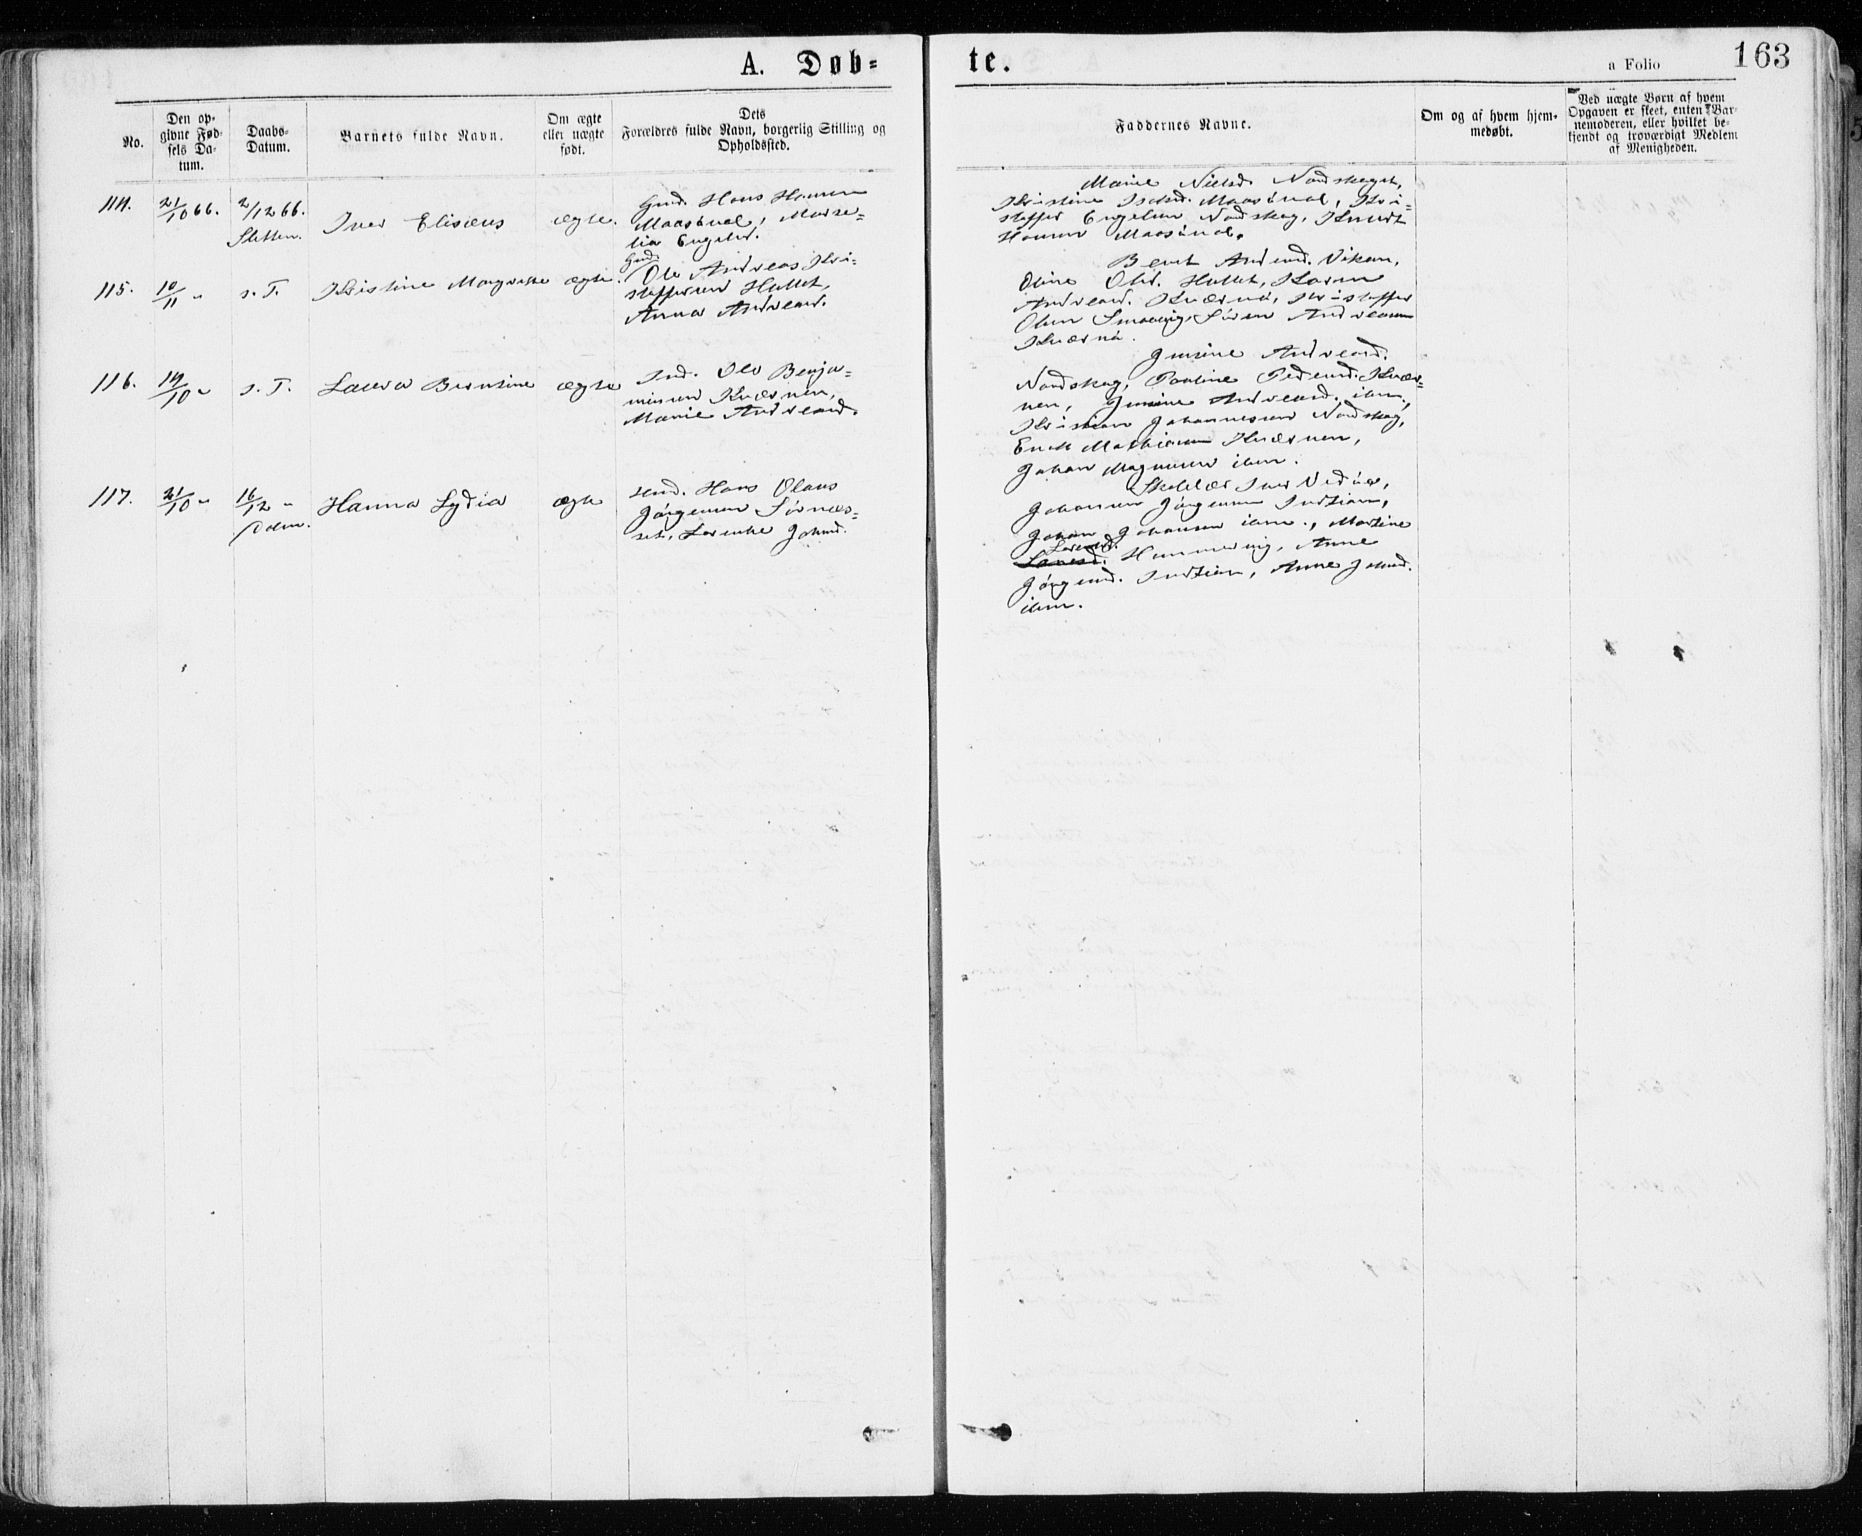 A. Døb=
te.
a Folio
163
No.
Den op-
givne Fød-
sels Da-
tum.
Daabs-
Datum.
Barnets fulde Navn.
Om ægte
eller uægte
født.
Dets
Forældres fulde Navn, borgerlig Stilling og
Opholdssted.
Faddernes Navne.
Om og af hvem hjem-
medøbt.
Ved uægte Børn af hvem
Opgaven er skeet, enten Bar-
nemoderen, eller hvilket be-
kjendt og troværdigt Medlem
af Menigheden.
114.
21/10 66.
2/12 66.
Sletten.
Iver Elisæus
ægte.
Gmd. Hans Hansen
Maasøval, Marse-
lia Engelsd.
Marie Nielsd. Nordskaget,
Kristine Isaksd. Maasøval, Kri-
stoffer Engelsen Nordskag, Knudt
Hansen Maasøval.
115.
10/11 "
s. T.
Kristine Margrethe
ægte.
Gmd.
Ole Andreas Kri-
stoffersen Hallet,
Anna Andreasd.
Berit Andersd. Vikan,
Oline Olsd. Hallet, Karen
Andreasd. Kværnø, Kristoffer
Olsen Smaavig, Søren Andreasen
Kværnø.
116.
14/10 "
s. T.
Laura Berntine
ægte
Ind. Ole Benja-
minsen Kværnen,
Marie Andreasd.
Jensine Andreasd.
Nordskag, Pauline Pedersd. Kvær-
nen, Jensine Andreasd. ibm.,
Kristian Johannessen Nordskag,
Enok Mathiasen Kværnen,
Johan Magnussen ibm.
117.
21/10 "
16/12 "
Dolm.
Hanna Lydia
ægte
Hans Olaus
Jørgensen Sørnæs-
set, Lorentse Johnsd.
Skolelær. Iver Vedøe,
Johannes Jørgensen Indtian,
Johan Johansen ibm., Martine
Lorensd.
Hammervig, Anne
Jørgensd. Indtian, Anne Johnsd.
ibm.